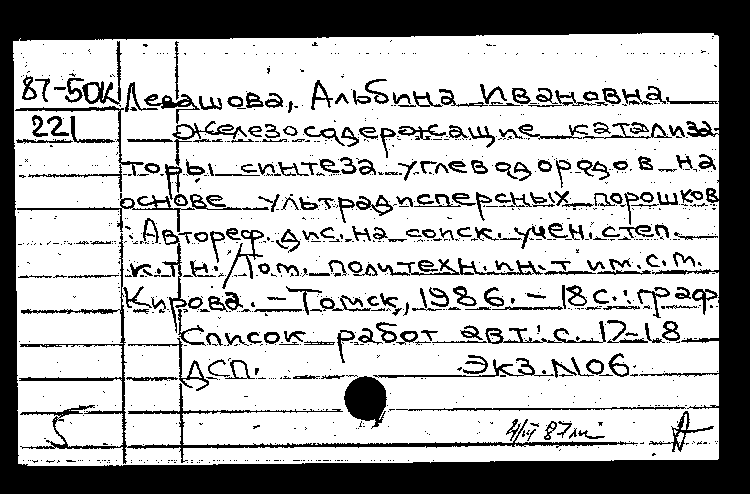 87-50К Левашова, Альбина Ивановна.
221 Железосодержащие катализа-
торы синтеза углеводородов на
основе ультрадисперсных порошков
: Автореф. дис. на соиск. учен. степ.
к.т.н. / Том. политехн. ин.-т им. С.М.
Кирова. - Томск, 1986. - 18 с. : граф.
Список работ авт.: с. 17-18
ДСП. Экз. №06
5